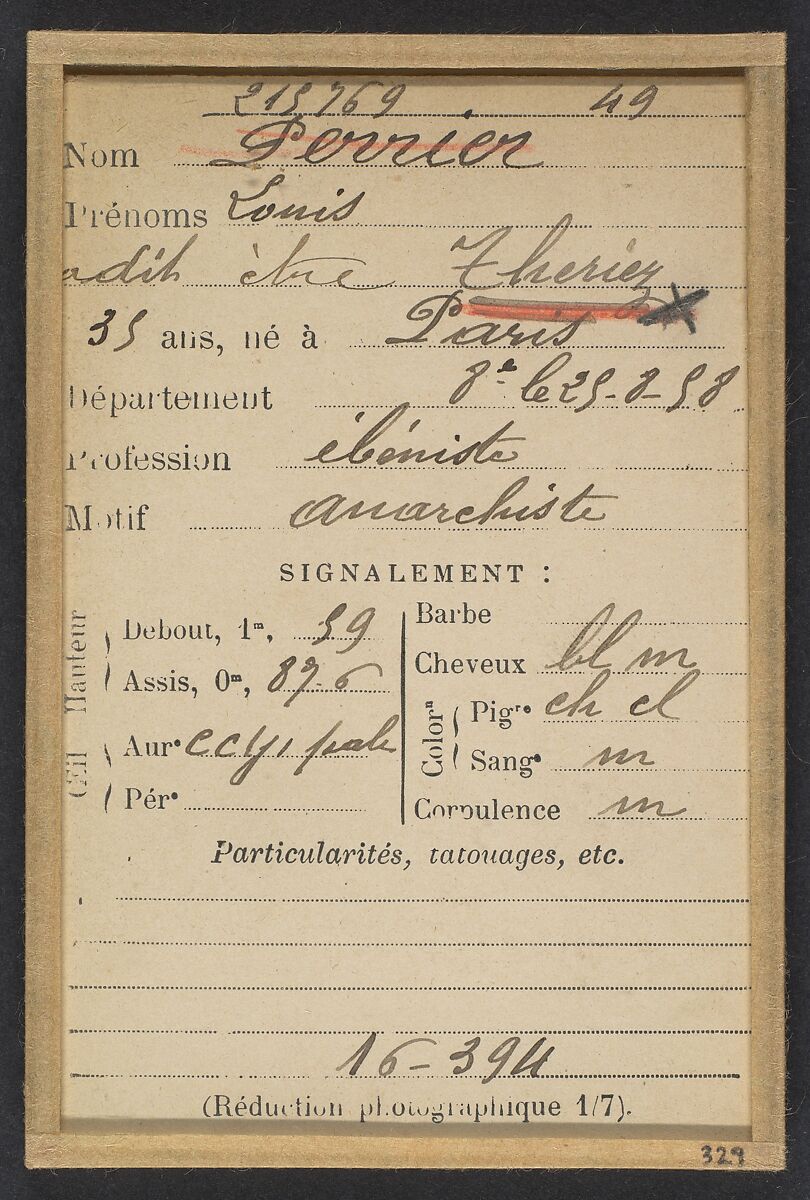 215769 49
Nom Perrier
Prénoms Louis
a dit être Theriez
35 ans, né à Paris
Département 8e le 25-8-58
Profession ébéniste
Motif anarchiste
SIGNALEMENT :
Hauteur
Debout, 1m, 59
Assis, 0m, 87-6
Œil
Aure pale
Pére
Barbe
Cheveux bl m
Colorn
Pigre ch cl
Sange m
Corpulence m
Particularités, tatouages, etc.
16-394
(Réduction photographique 1/7).
329